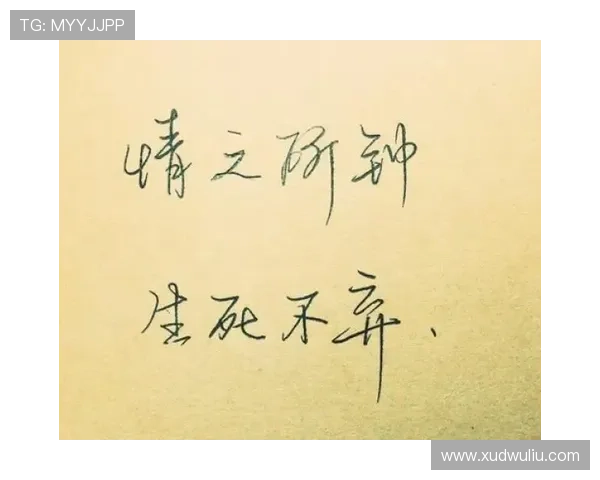 TG: MYYJJPP
情之所钟
生死不弃、
www.xudwuliu.com